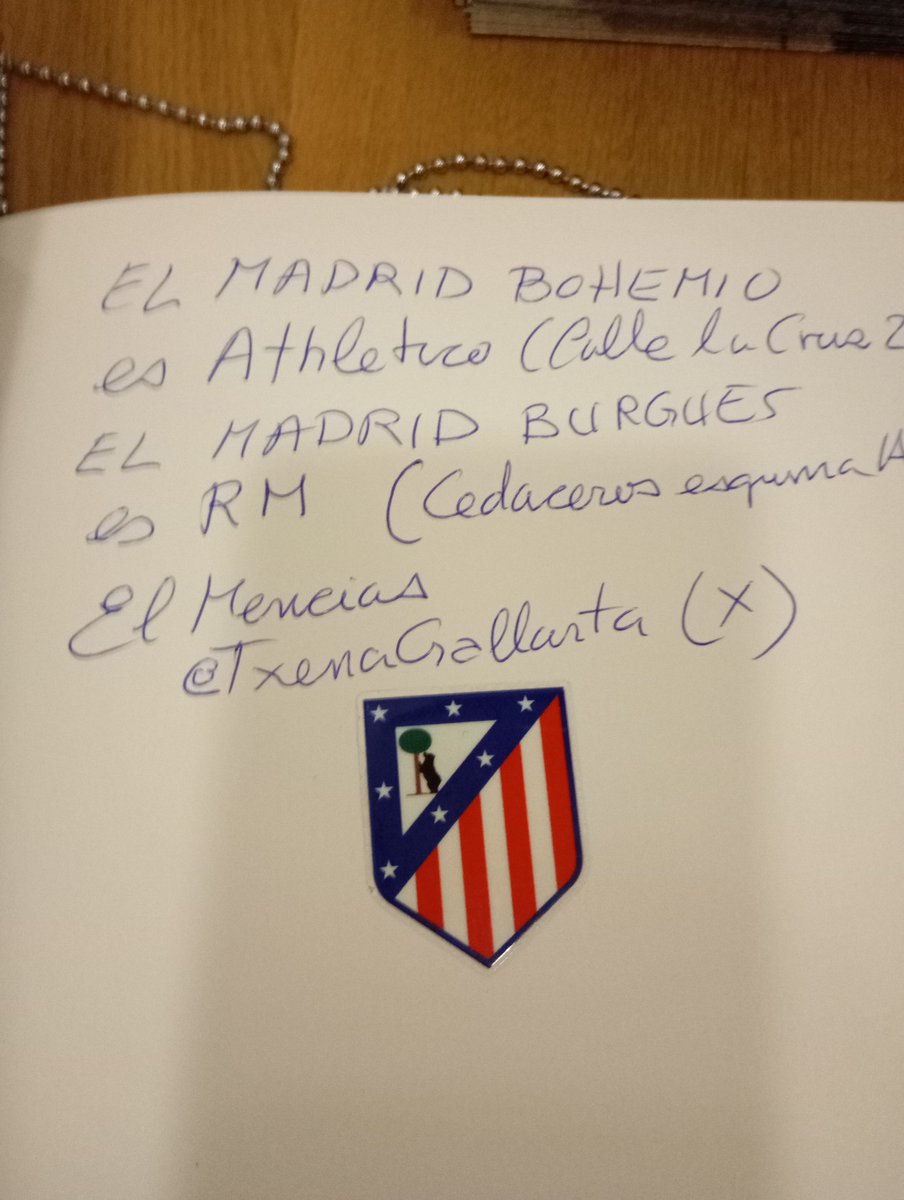 EL MADRID BOHEMIO
es Athletico (Calle la Cruz 2
EL MADRID BURGUES
es RM (Cedaceros esquina
El Mencias
@TxemaGallarta (X)